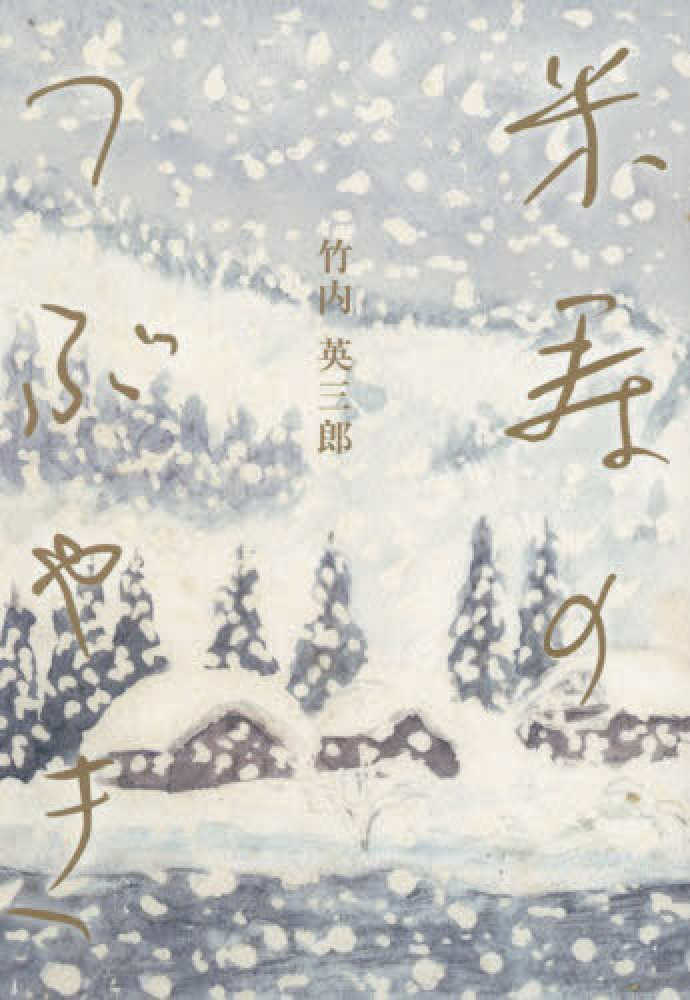 米寿の
つぶやき
竹内 英三郎